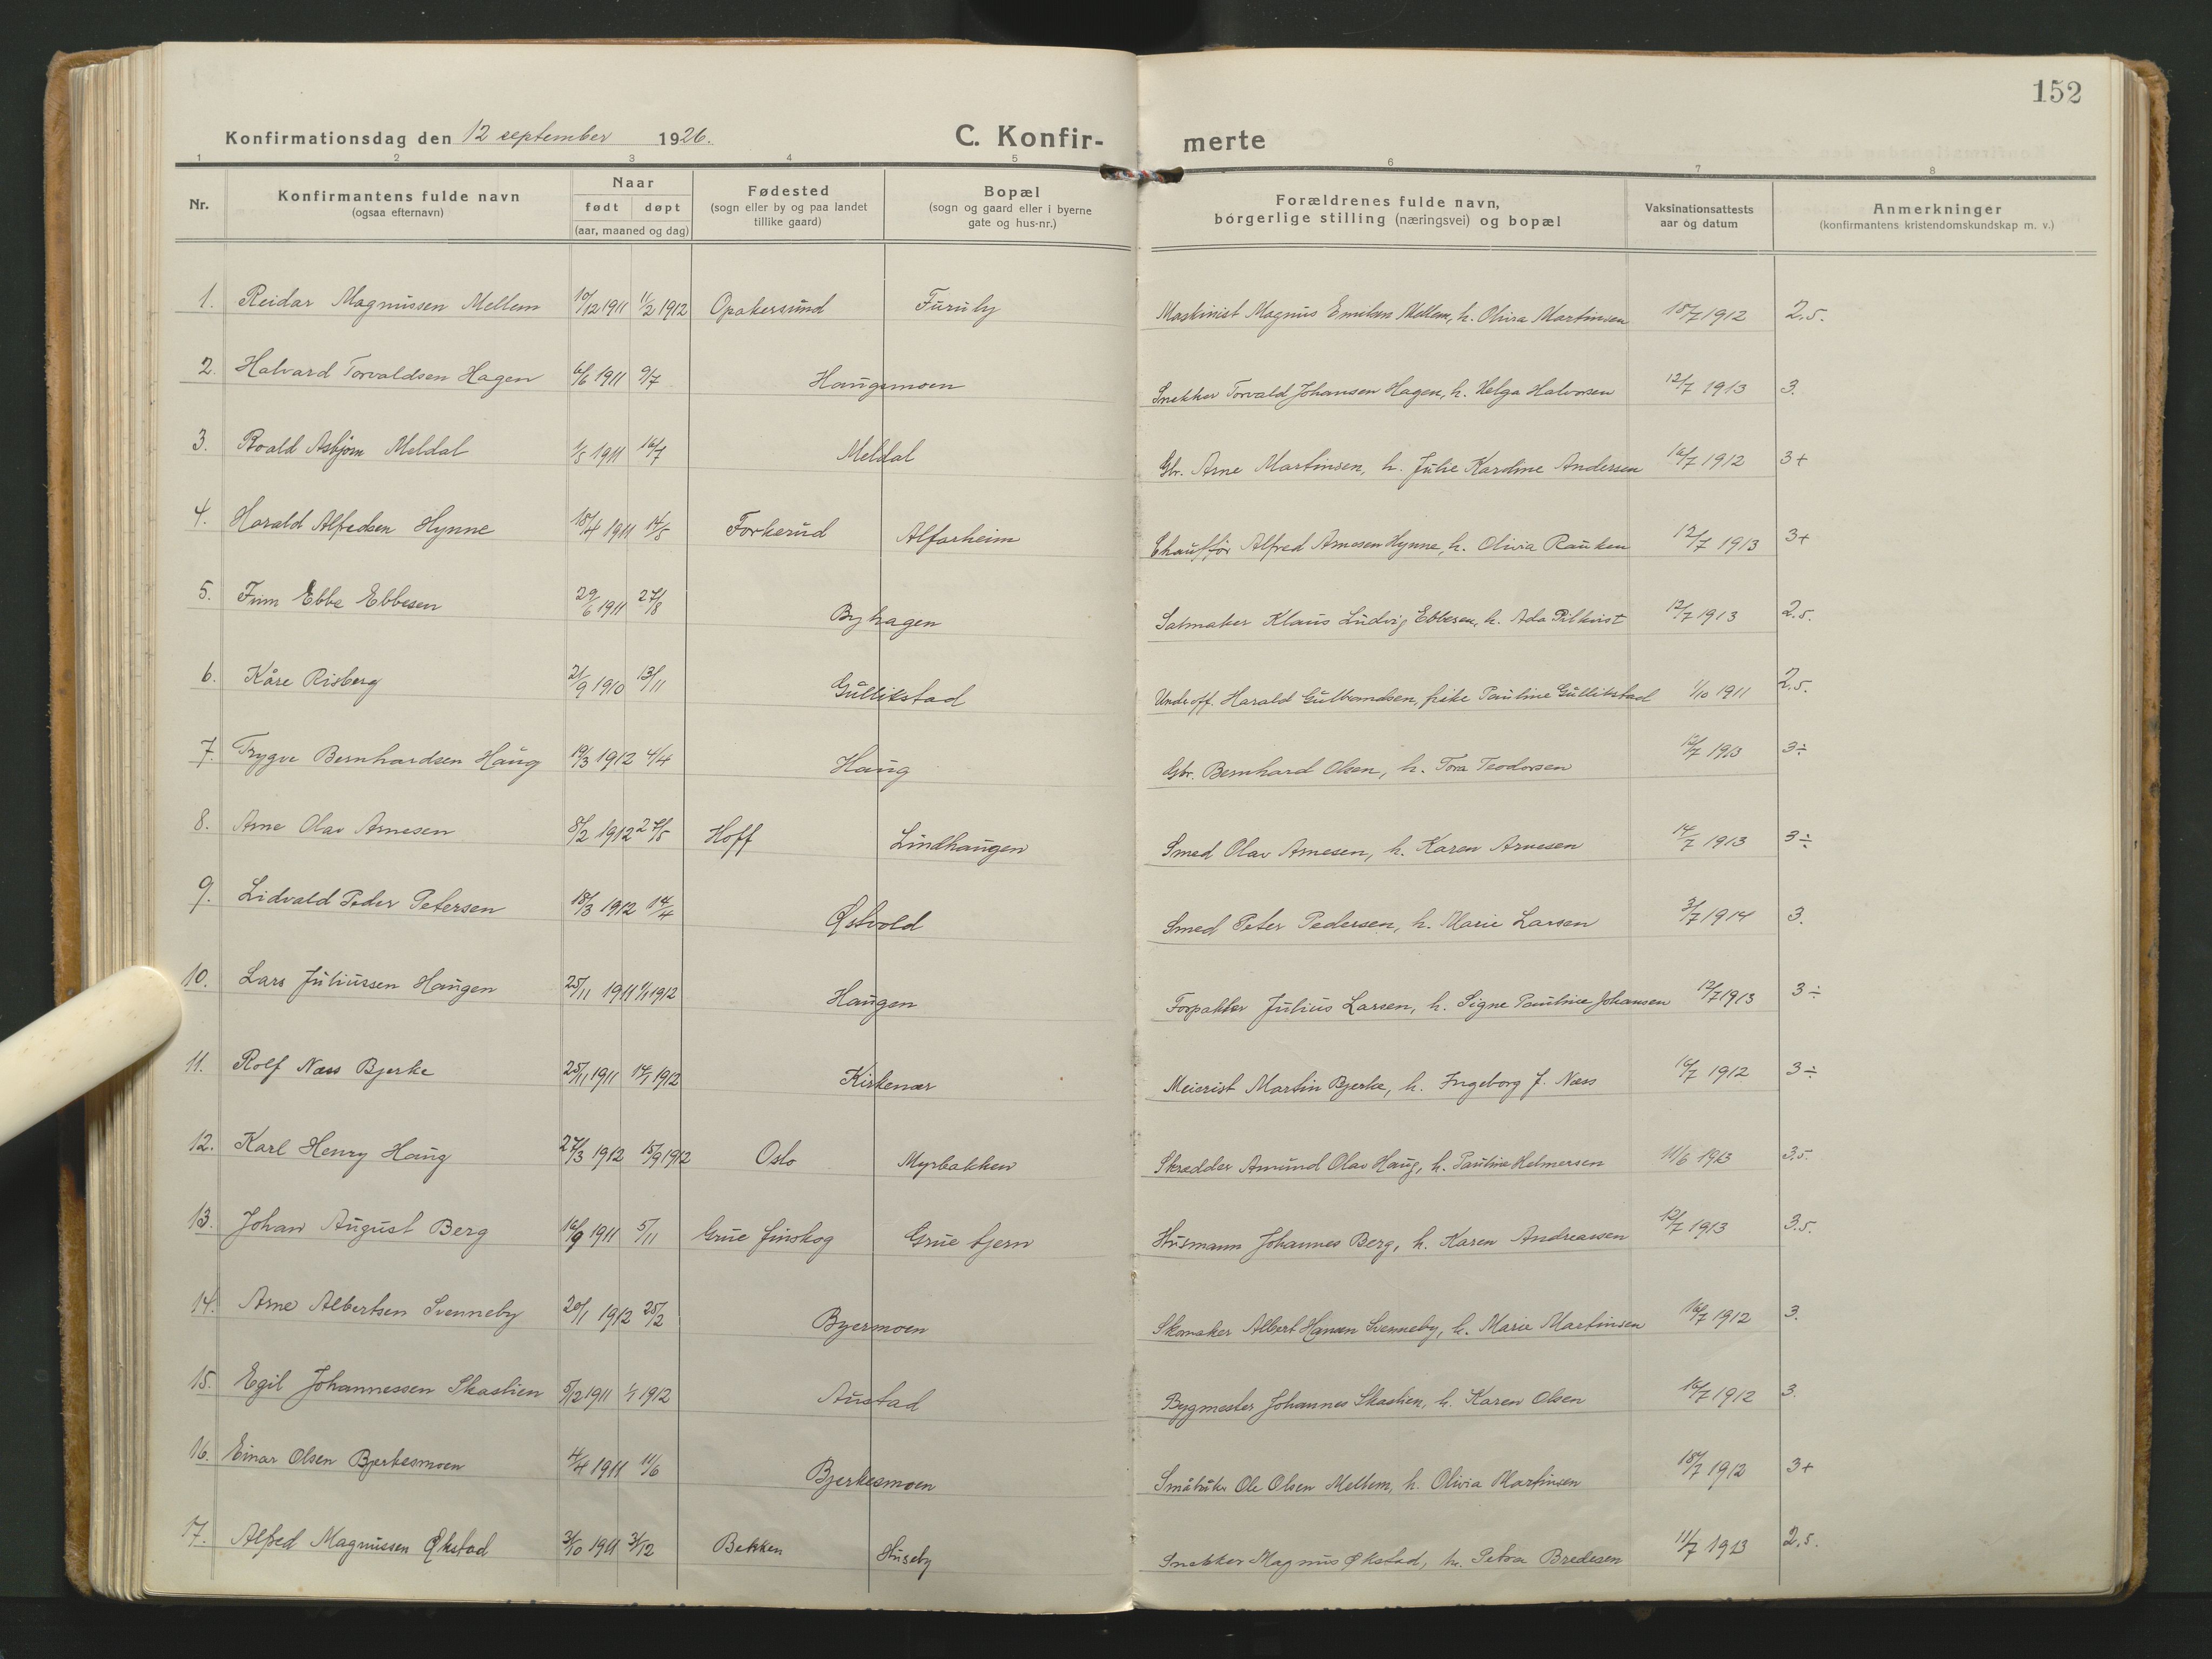 152
Konfirmationsdag den 12 september 1926.
C. Konfirmerte
1 2 3 4 5 6 7 8
Nr. Konfirmantens fulde navn (ogsaa efternavn) Naar født døpt (aar, maaned og dag) Fødested (sogn eller by og paa landet tillike gaard) Bopæl (sogn og gaard eller i byerne gate og hus-nr.) Forældrenes fulde navn, borgerlige stilling (næringsvei) og bopæl Vaksinationsattests aar og datum Anmerkninger (konfirmantens kristendomskundskap m. v.)
1. Reidar Magnussen Mellem 10/12 1911 11/2 1912 Opakersund Furuly Maskinist Magnus Emilsen Mellem, h. Olivia Martinsen 18/7 1912 2.5.
2. Halvard Torvaldsen Hagen 6/6 1911 9/7 Haugsmoen Snekker Torvald Johansen Hagen, h. Helga Halvorsen 12/7 1913 3.
3. Roald Asbjørn Meldal 1/5 1911 16/7 Meldal Gbr. Arne Martinsen, h. Julie Karoline Andersen 16/7 1912 3+
4. Harald Alfredsen Hynne 18/4 1911 14/5 Forkerud Alfarheim Chauffør Alfred Arnesen Hynne, h. Olivia Rauken 12/7 1913 3+
5. Finn Ebbe Ebbesen 29/6 1911 27/8 Byhagen Salmaker Klaus Ludvig Ebbesen, h. Ada Pilkvist 12/7 1913 2.5.
6. Kåre Risberg 21/9 1910 13/11 Gullikstad Underoff. Harald Gulbrandsen, pike Pauline Gullikstad 1/10 1911 2.5.
7. Trygve Bernhardsen Haug 19/3 1912 4/4 Haug Gbr. Bernhard Olsen, h. Tora Teodorsen 12/7 1913 3÷
8. Arne Olav Arnesen 8/2 1912 27/5 Hoff Lindhaugen Smed Olav Arnesen, h. Karen Arnesen 14/7 1913 3÷
9. Lidvald Peder Petersen 18/3 1912 14/4 Østvold Smed Peter Pedersen, h. Marie Larsen 3/7 1914 3.
10. Lars Juliussen Haugen 25/11 1911 1/1 1912 Haugen Forpakter Julius Larsen, h. Signe Pauline Johansen 12/7 1913 3÷
11. Rolf Næss Bjerke 25/11 1911 14/1 1912 Kirkenær Meierist Martin Bjerke, h. Ingeborg J. Næss 16/7 1912 3÷
12. Karl Henry Haug 27/3 1912 15/9 1912 Oslo Myrbakken Skrædder Amund Olav Haug, h. Pauline Helmersen 11/6 1913 3.5.
13. Johan August Berg 16/9 1911 5/11 Grue finskog Grue tjern Husmann Johannes Berg, h. Karen Andreassen 12/7 1913 3.5.
14. Arne Albertsen Svenneby 20/1 1912 25/2 Byermoen Skomaker Albert Hansen Svenneby, h. Marie Martinsen 16/7 1912 3.
15. Egil Johannessen Skaslien 5/12 1911 1/1 1912 Austad Bygmester Johannes Skaslien, h. Karen Olsen 16/7 1912 3.
16. Einar Olsen Bjerkesmoen 4/4 1911 11/6 Bjerkesmoen Småbruker Ole Olsen Mellem, h. Olivia Martinsen 18/7 1912 3+
17. Alfred Magnussen Økstad 3/10 1911 3/12 Bekken Huseby Snekker Magnus Økstad, h. Petra Bredesen 11/7 1913 2.5.